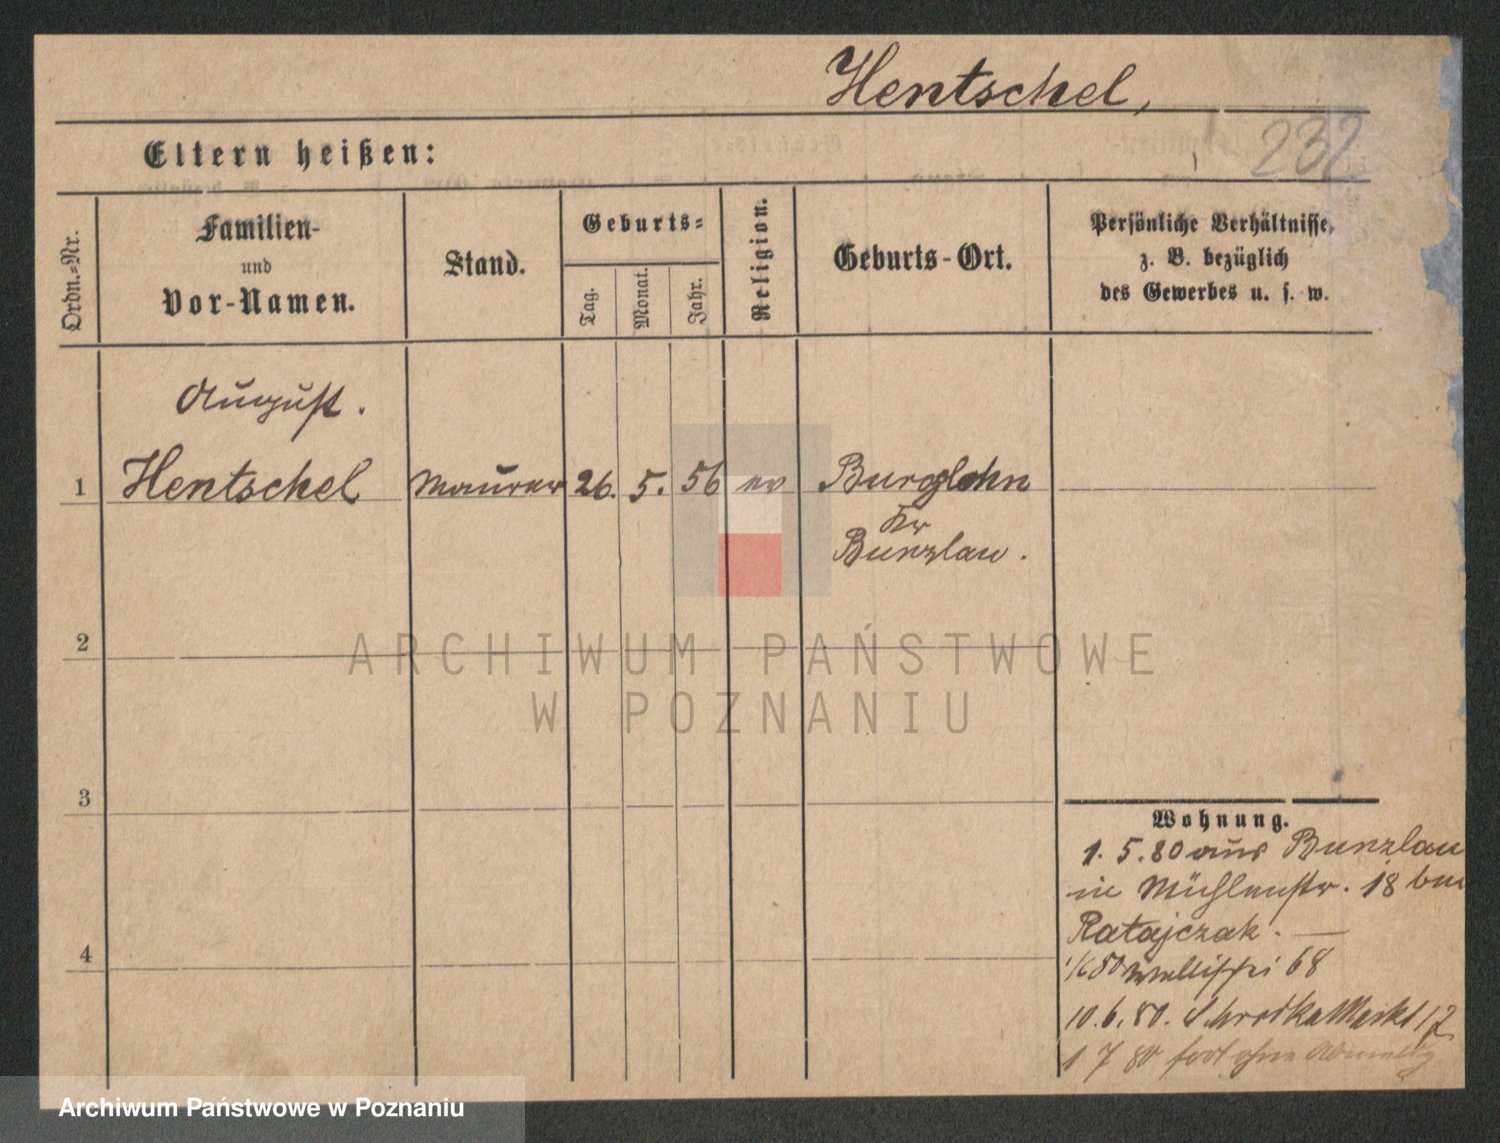 Hentschel,
232
Eltern heißen:
Ordn.=Nr.
Familien-
und
Vor-Namen.
Stand.
Geburts=
Tag.
Monat.
Jahr.
Religion.
Geburts-Ort.
Persönliche Verhältnisse,
z. B. bezüglich
des Gewerbes u. s. w.
August.
1 Hentschel Maurer 26. 5. 56 ev Burglehn
Kr
Bunzlau.
2
ARCHIWUM PAŃSTWOWE
W POZNANIU
3
Wohnung.
1. 5. 80 aus Bunzlau
in Mühlenstr. 18 bei
Ratajczak. —
4
1/6 80 Wallischei 68
10. 6. 80. Schrodka Markt 17
1 7 80 fort ohne Abmeldg
Archiwum Państwowe w Poznaniu